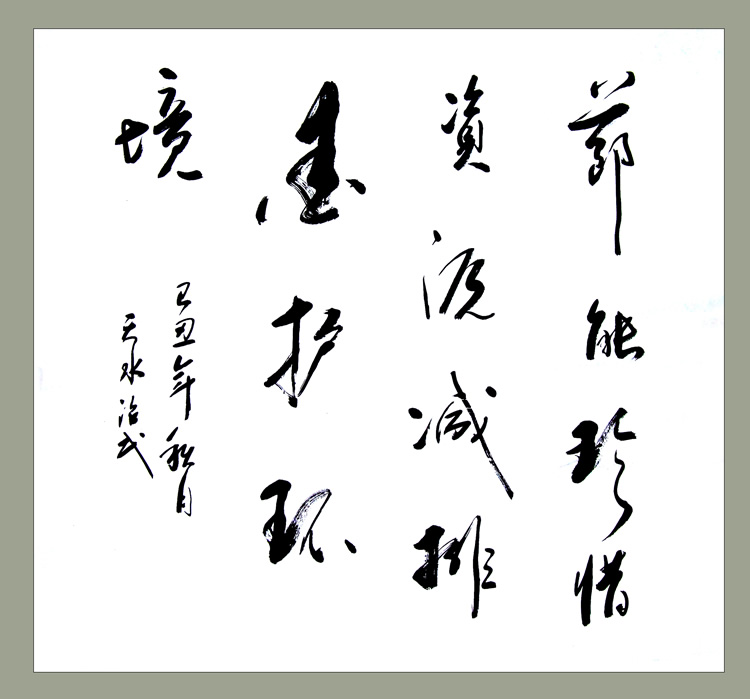 節能珍惜
資源减排
愛护环
境
己丑年秋月
天水治武